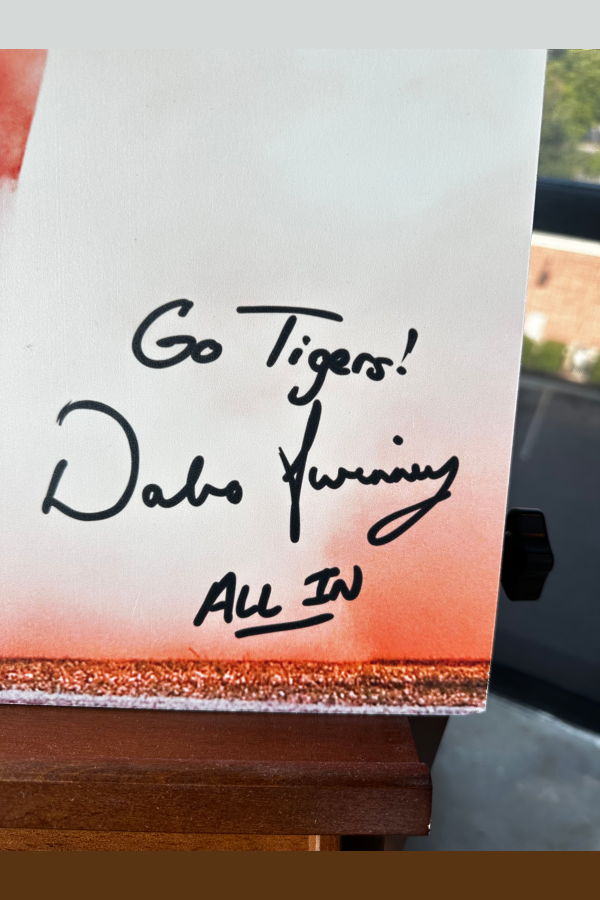 Go Tigers!
Dabo Swinney
ALL IN